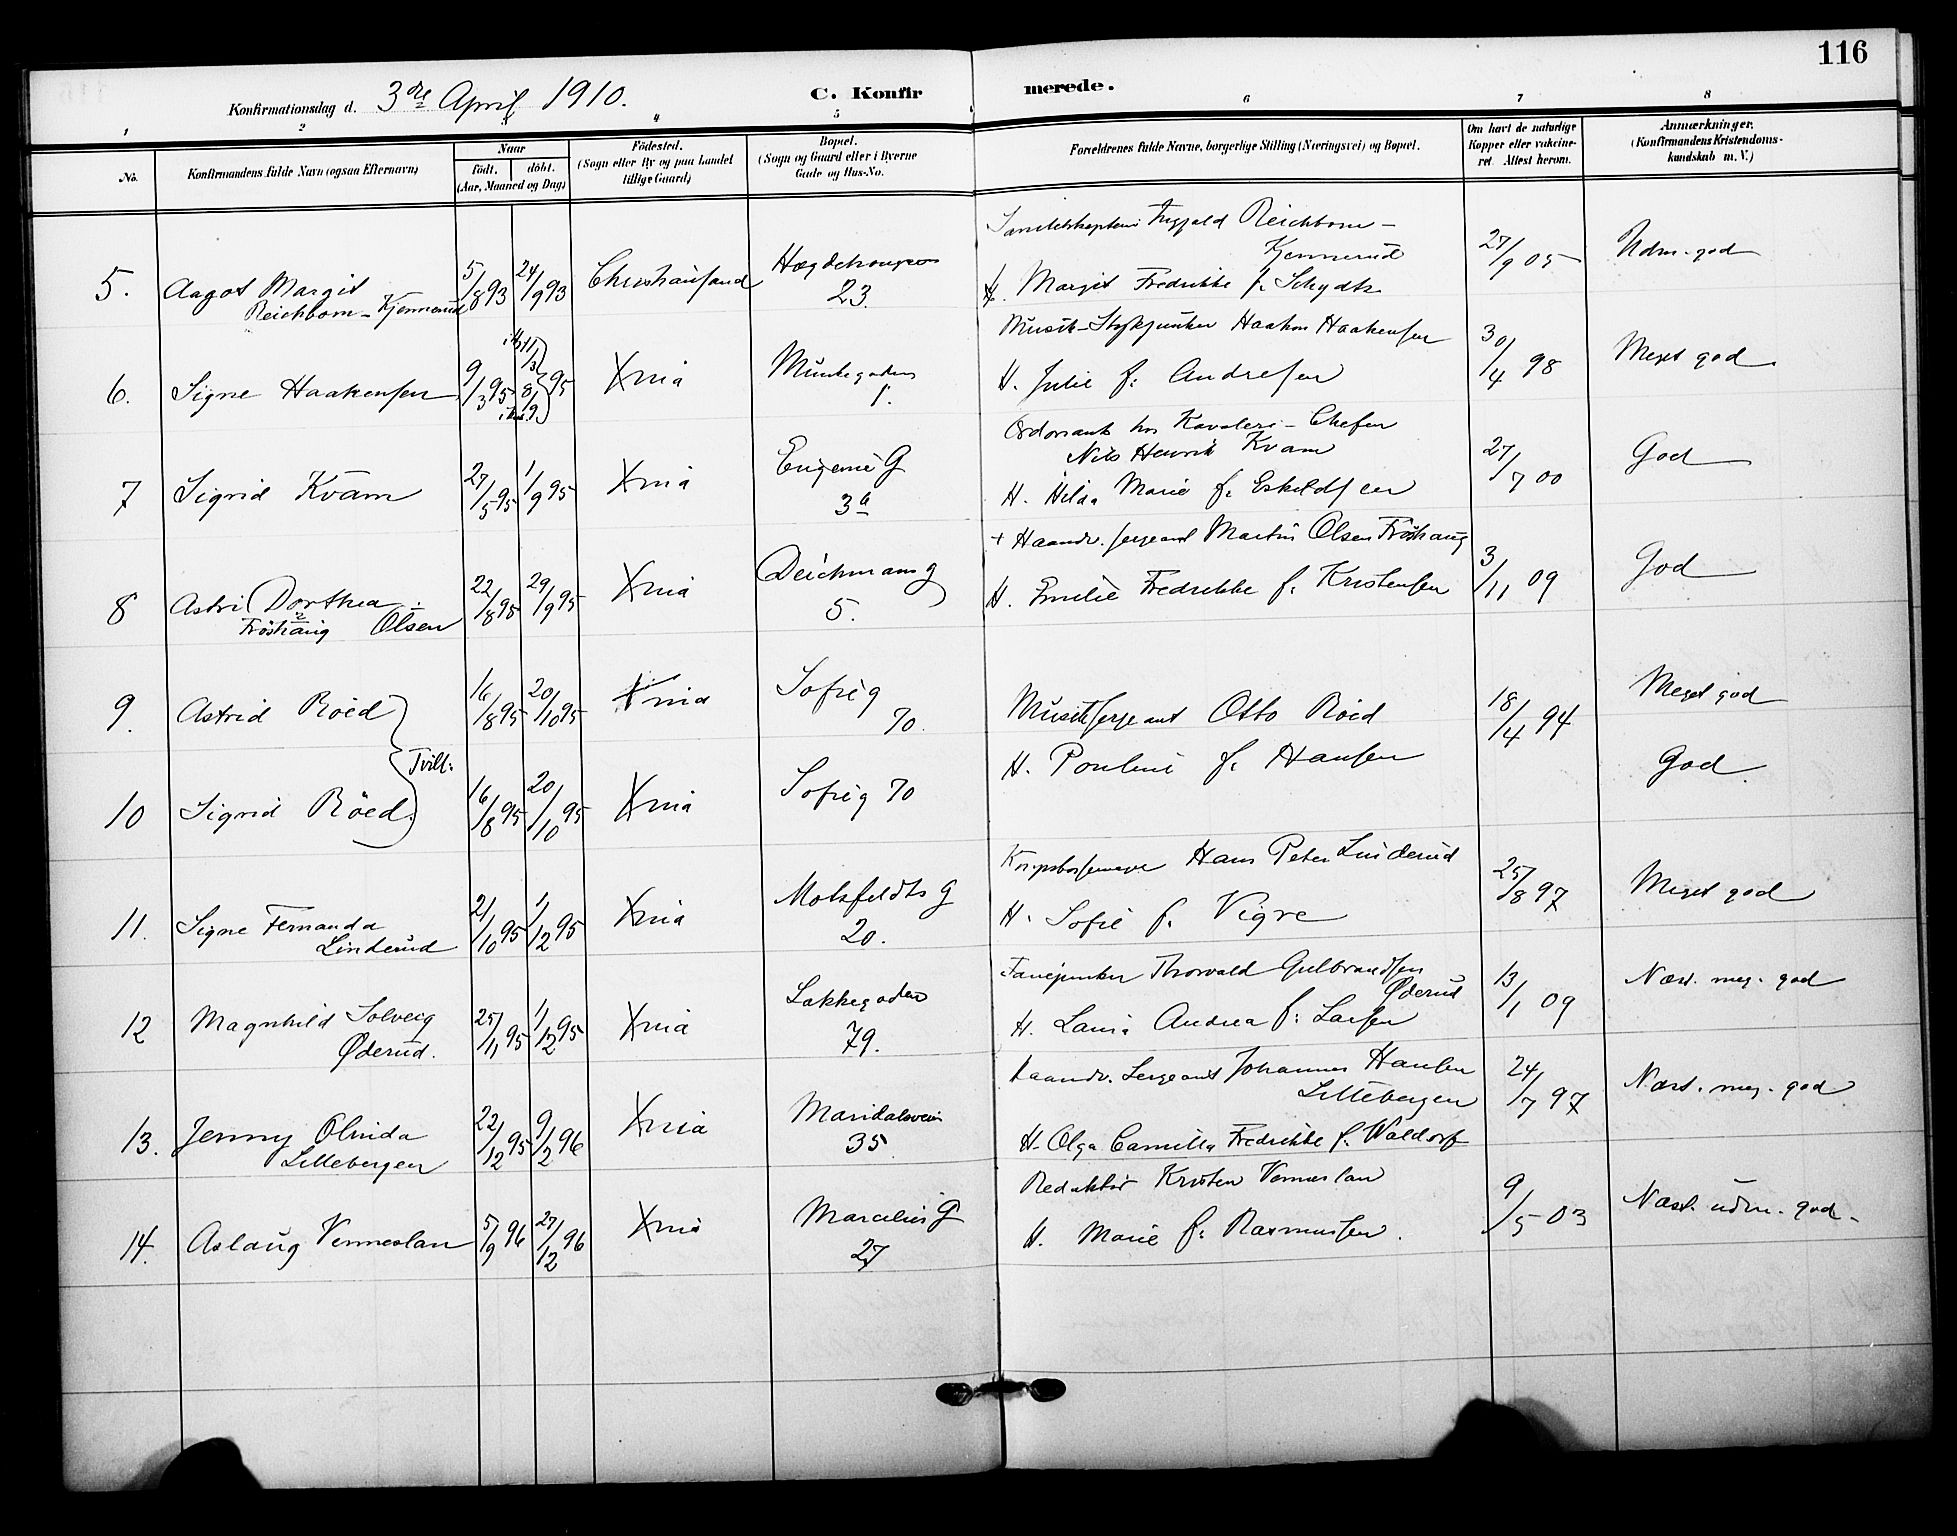 116
Konfirmationsdag d. 3dre April 1910.
C. Konfirmerede.
1 2 3 4 5 6 7 8
No.
Konfirmandens fulde Navn (ogsaa Efternavn)
Naar
født. døbt.
(Aar, Maaned og Dag)
Fødested.
(Sogn eller By og paa Landet
tillige Gaard)
Bopæl.
(Sogn og Gaard eller i Byerne
Gade og Hus-No.
Forældrenes fulde Navne, borgerlige Stilling (Næringsvei) og Bopæl.
Om havt de naturlige
Kopper eller vakcine-
ret. Attest herom.
Anmærkninger.
(Konfirmandens Kristendoms-
kundskab m. V.)
5. Aagot Margit
Reichborn-Kjennerud
5/8 93 24/9 93 Christiansand
23.
Ingjald Reichborn-
Kjennerud
H. Margit Fredrikke f.
27/9 05 Udm. god
6. Signe Haakensen 9/3 95 Xnia
Munkegaden
1.
Musik-Stykjunker Haakon Haakensen
H. Julie f. Andresen
30/4 98 Meget god
7 Sigrid Kvam 27/5 95 1/9 95 Xnia
Eugenie G
3a
Ordonants hos Kavaleri-Chefen
Nils Henrik Kvam
H. Hilda Marie f. Eskildsen
27/7 00 God
8 Astri Dorthea
Fröshaug Olsen
22/8 95 29/9 95 Xnia
Deichmansg
5.
+ Haandv. sergeant Martin Olsen Fröshaug
H. Emilie Fredrikke f. Kristensen
3/11 09 God
9. Astrid Röed 16/8 95 20/10 95 Xnia
Sofieg
70.
Musiksergeant Otto Röed
H. Pouline f. Hansen
18/4 94 Meget god
Tvill:
10 Sigrid Röed. 16/8 95 20/10 95 Xnia Sofieg 70
God.
11. Signe Fernanda
Linderud
2/10 95 1/12 95 Xnia
Motzfeldts G
20.
Korpsbøssemager Hans Peter Linderud
H. Sofie f. Vigre
25/8 97 Meget god
12 Magnhild Solveig
Øderud.
25/11 95 1/12 95 Xnia
Lakkegaden
79.
Fanejunker Thorvald Gulbrandsen
Øderud
H. Andrea f. Larsen
13/1 09 Næst. meg. god
13. Jenny
Lillebergen
22/12 95 9/2 96 Xnia
Maridalsveien
35.
Haandv. Sergeant Johannes Hansen
Lillebergen
H. Olga Camilla Fredrikke f. Waldorf
24/7 97 Næst. meg. god
14. Aslaug Venneslan
5/9 96 27/12 96 Xnia
Marcelius G
27
Redaktör Kristen Venneslan
H. Marie f. Rasmussen.
9/5 03 Næst. udm. god.